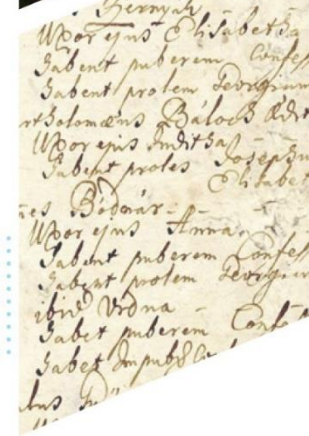 Uxor ejus Elisabetha
Habent puberem Confes
Habent prolem Georgium
rtholomæus Bálock
Uxor ejus Juditha
Habent proles Josephu
Elisabet
Bodnár
Uxor ejus Anna
Habent puberem Confes
Habent prolem Georgium
ibid Vrdna
Habet puberem Conf
Habet Impub